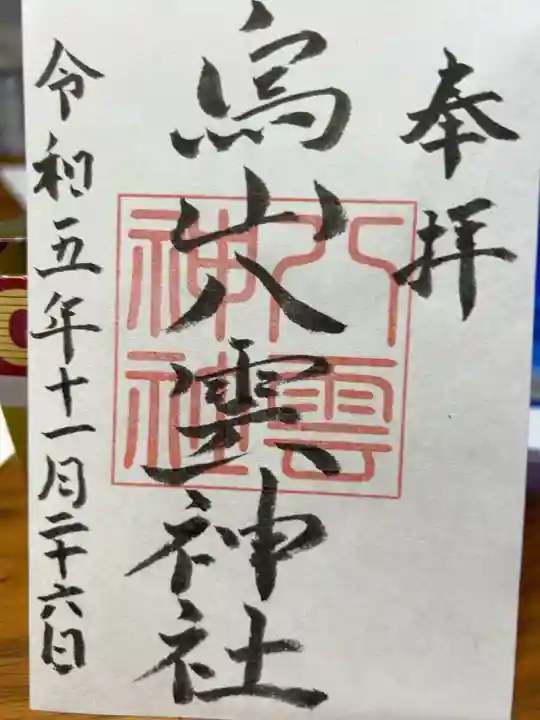 奉拝
烏山八雲神社
八雲
神社
令和五年十一月二十六日